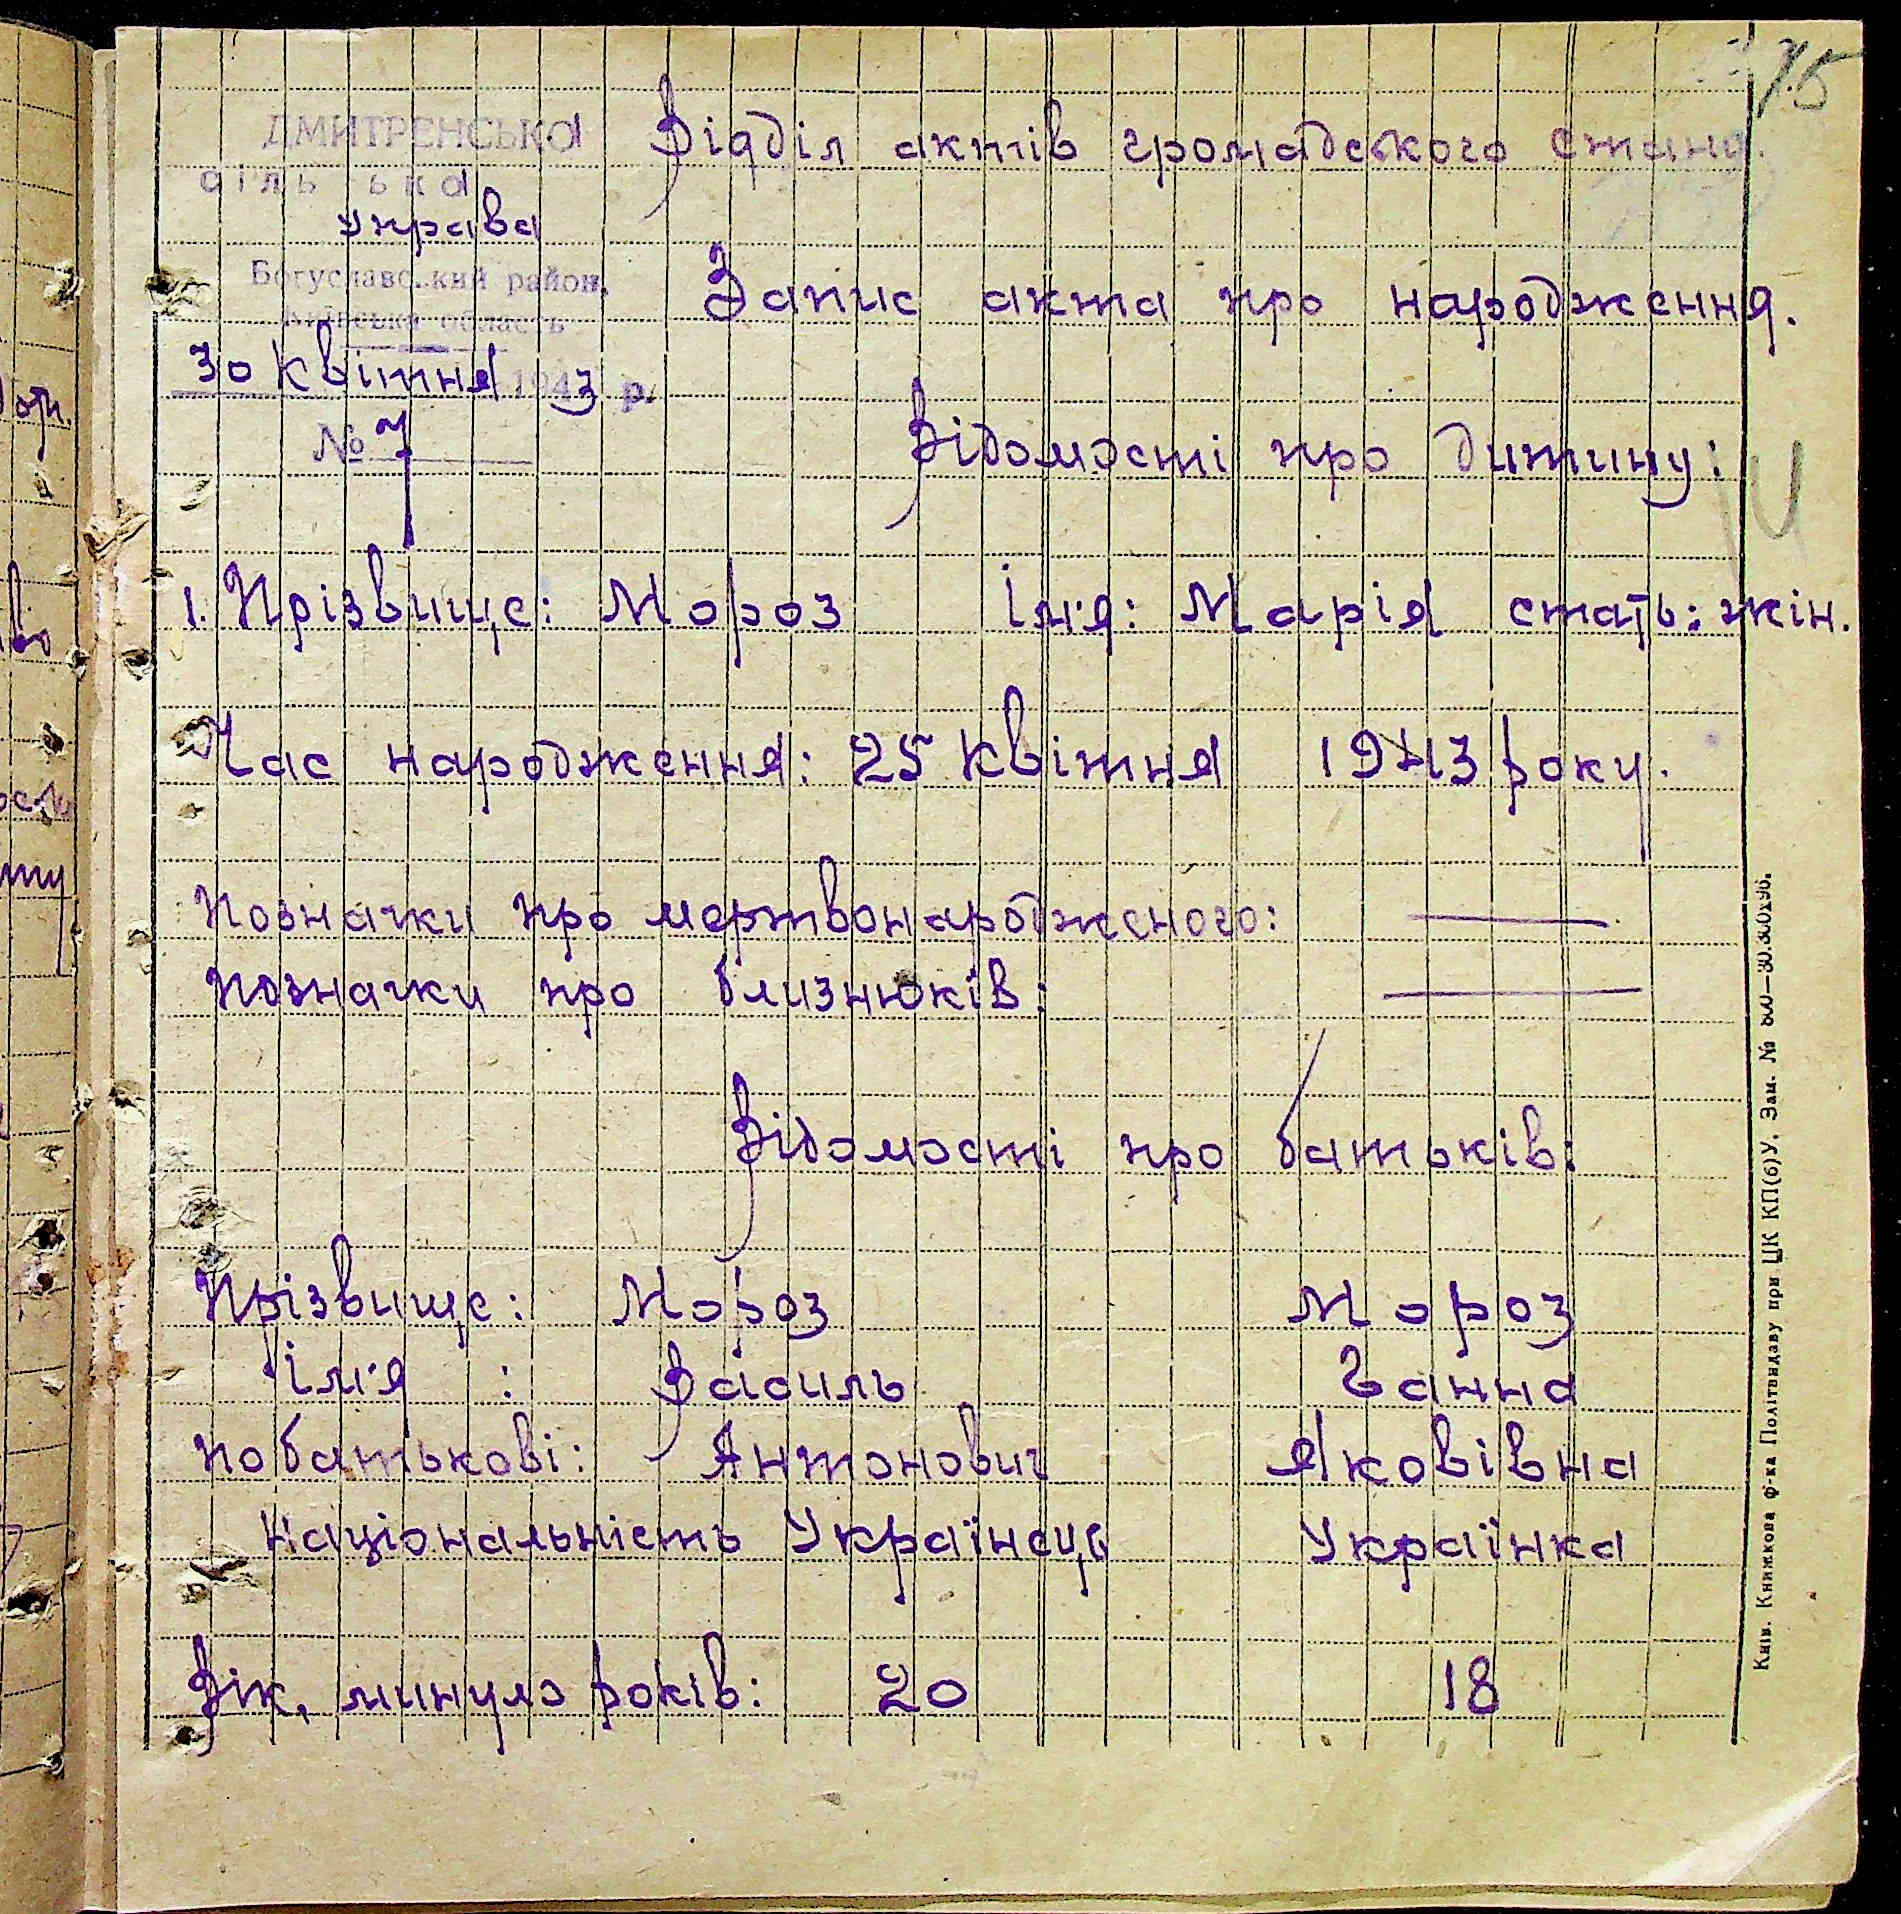 75
ДМИТРЕНСЬКА Відділ актів громадського стану.
сіль ька
управа
Богуславс..кий район, Запис акта про народження.
Київська область
30 квітня 1943 р.
№ 7 Відомості про дитину:
1. Прізвище: Мороз Ім'я: Марія стать: жін.
Час народження: 25 квітня 1943 року.
Позначки про мертвонародженого:
Позначки про близнюків:
Відомості про батьків:
Прізвище: Мороз Мороз
ім'я : Василь Ганна
по батькові: Антонович Яковівна
національність Українець Українка
Вік, минуло років: 20 18
Київ. Книжкова ф-ка Політвидаву при ЦК КП(б)У. Зам. №